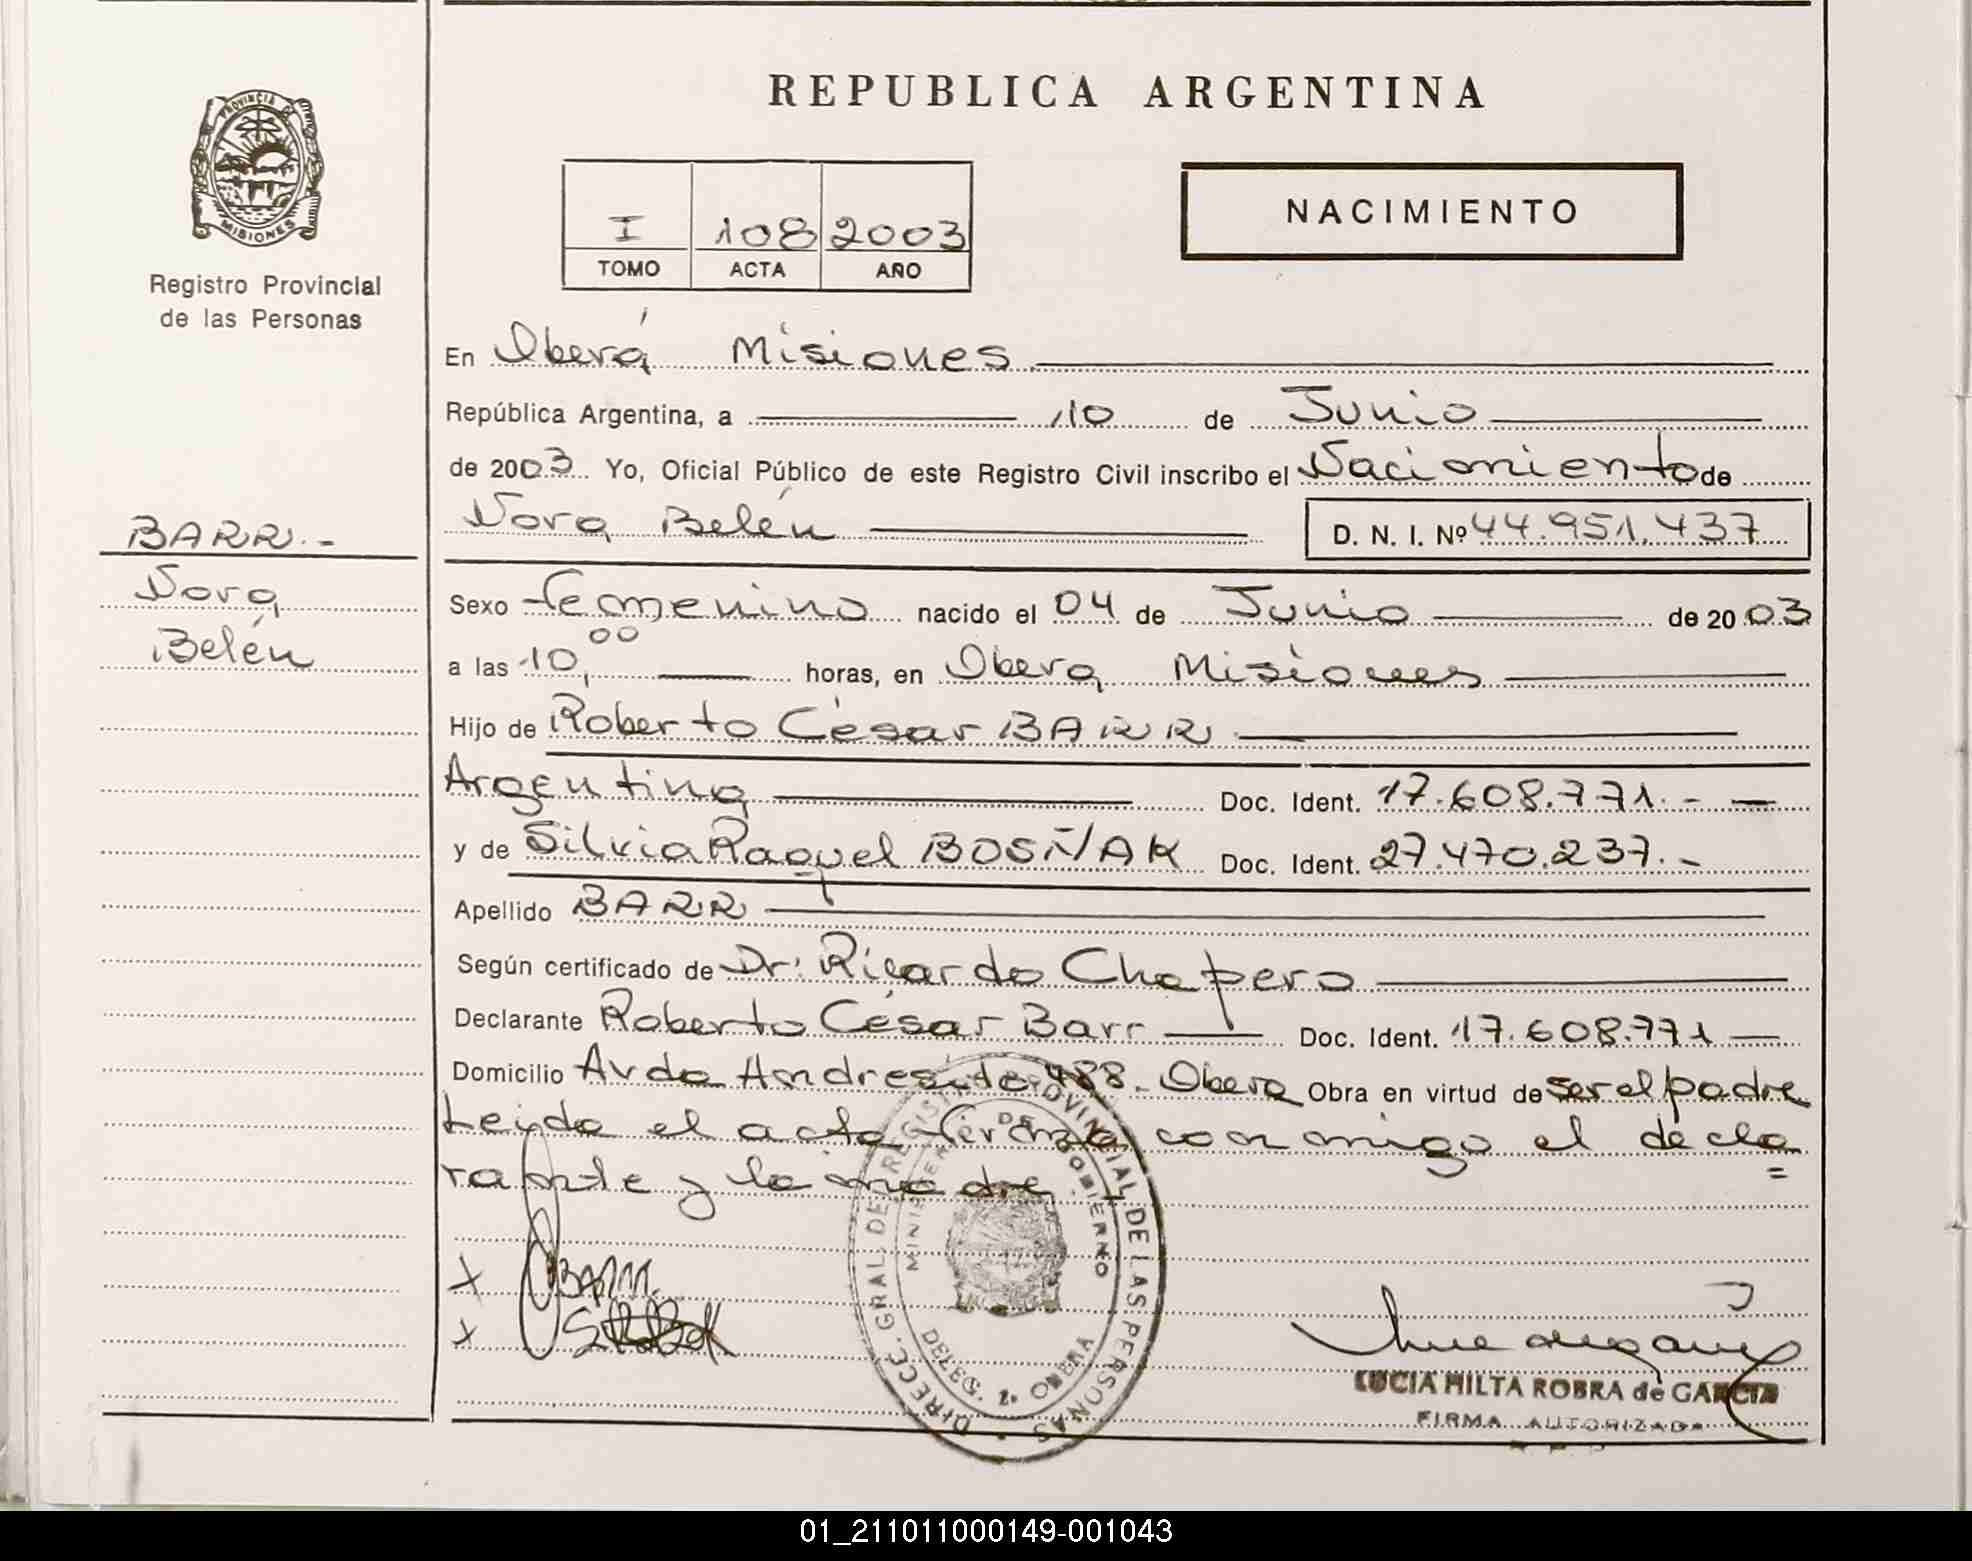 REPUBLICA ARGENTINA
PROVINCIA DE
MISIONES
Registro Provincial
de las Personas
I 108 2003
TOMO ACTA AÑO
NACIMIENTO
En Oberá Misiones
República Argentina, a 10 de Junio
de 2003 Yo, Oficial Público de este Registro Civil inscribo el Nacimiento de
Nora Belén D. N. I. Nº 44.951.437
BARR.-
Nora
Belén
Sexo femenino nacido el 04 de Junio de 2003
a las 10,00 horas, en Obera Misiones
Hijo de Roberto César BARR
Argentina Doc. Ident. 17.608.771.-
y de Silvia Raquel BOSÑAK Doc. Ident. 27.470.237.-
Apellido BARR
Según certificado de Dr: Ricardo Chapero
Declarante Roberto César Barr Doc. Ident. 17.608.771
Domicilio Avda Andresito 488. Obera Obra en virtud de ser el padre
Leida el acta firma conmigo el decla
rante y la madre.
X BARR.
X
DIRECC. GRAL DE REGISTRO PROVINCIAL DE LAS PERSONAS
MINISTERIO DE GOBIERNO
DELEG. 2ª OBERÁ
LUCIA MILTA ROBRA de GARCIA
FIRMA AUTORIZADA
01_211011000149-001043